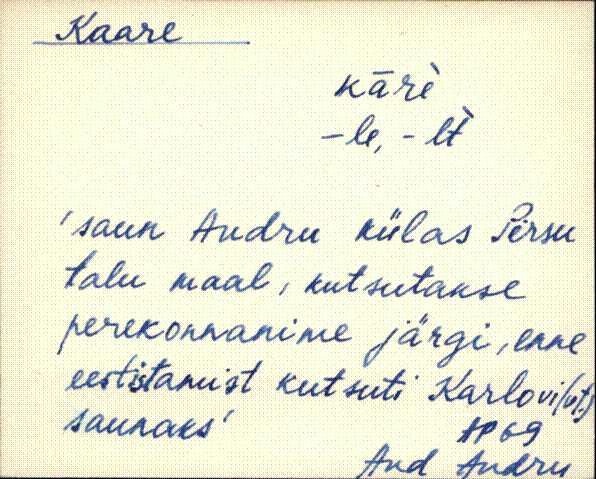 Kaare
kārè
-le, -lt̀
'saun Andru külas Pərsu
talu maal, kutsutakse
perekonnanime järgi, enne
eestistamist kutsuti Karlovi (vt.)
saunaks'
AP 69
And Andru